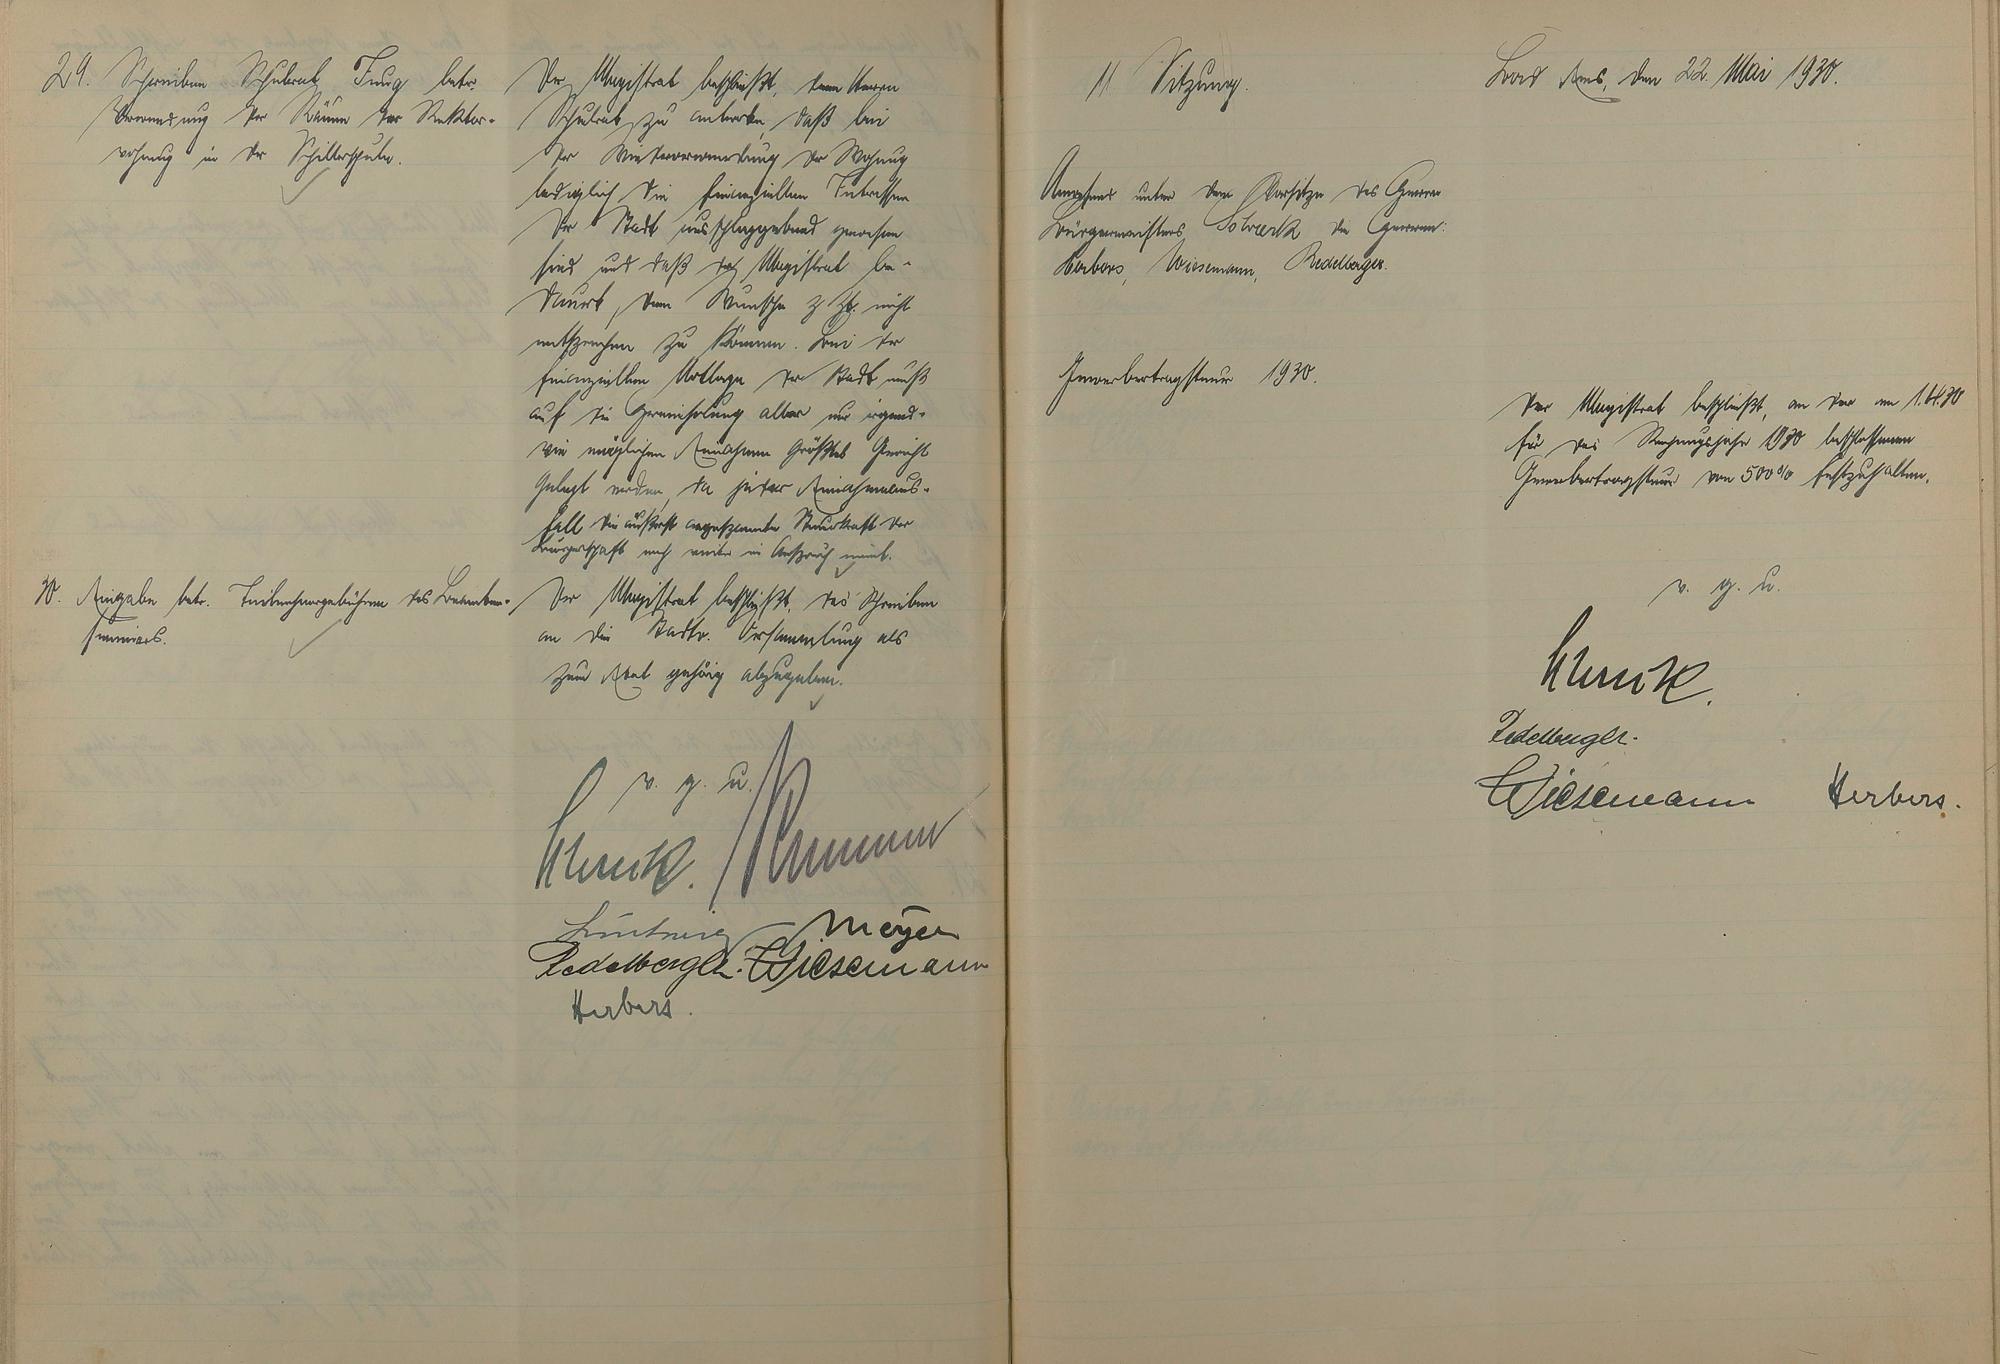 29. Schreiben Schulrat Jung betr.
Verwendung der Räume der Rektor-
wohnung in der Schillerschule.
Der Magistrat beschließt, dem Herrn
Schulrat zu antworten, daß bei
der Wiederverwendung der Wohnung
lediglich die finanziellen Interessen
der Stadt ausschlaggebend gewesen
sind und daß der Magistrat be-
dauert, dem Wunsche z. Zt. nicht
entsprechen zu können. Bei der
finanziellen Notlage der Stadt muß
auf die Hereinholung aller nur irgend-
wie möglichen Einnahmen größtes Gewicht
gelegt werden, da jeder Einnahmeaus-
fall die äußerst angespannte Steuerkraft der
Bürgerschaft noch weiter in Anspruch nimmt.
30. Eingabe betr. Teilnehmergebühren des Beamten-
seminars.
Der Magistrat beschließt, das Schreiben
an die Stadtv. Versammlung als
zum Etat gehörig abzugeben.
v. g. u.
Meyer
Redelberger. Wiesemann
Herbers.
11 Sitzung.
Bad Ems, den 22. Mai 1930.
Anwesend unter dem Vorsitze des Herrn
Bürgermeisters die Herren:
Herbers, Wiesemann, Redelberger.
Gewerbeertragsteuer 1930.
Der Magistrat beschließt, an der am 1.4.30
für das Rechnungsjahr 1930 beschlossenen
Gewerbeertragsteuer von 500% festzuhalten.
v. g. u.
Redelberger.
Wiesemann Herbers.